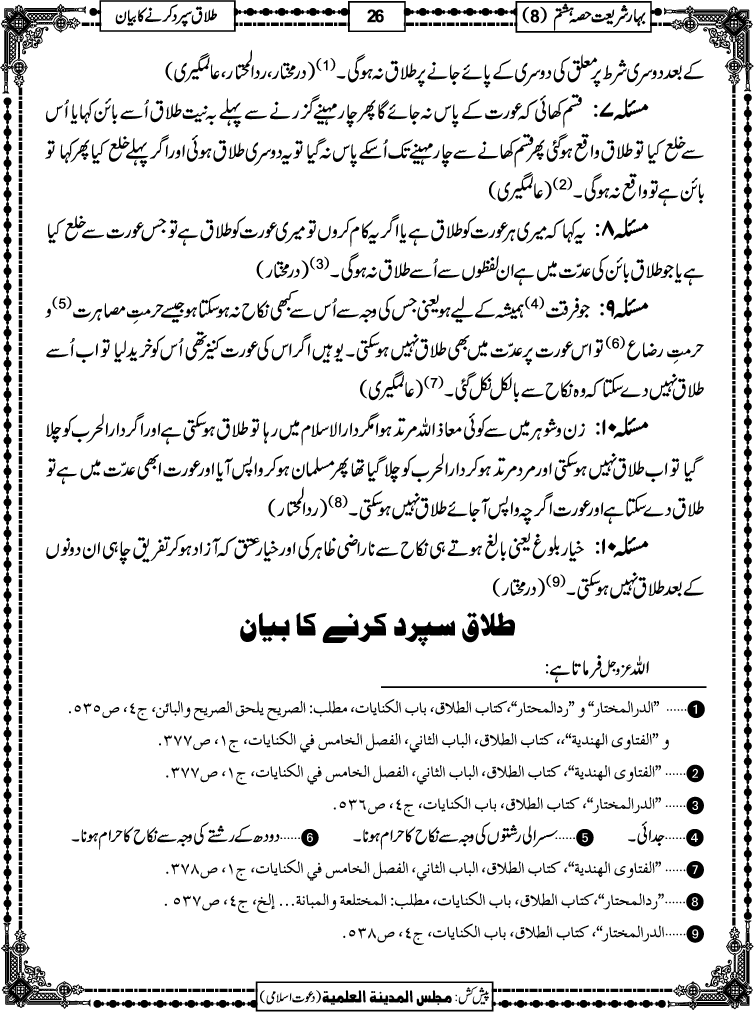 بہار شریعت حصہ ہشتم (8)
26
طلاق سپرد کرنے کا بیان
کے بعد دوسری شرط پر معلق کی دوسری کے پائے جانے پر طلاق نہ ہوگی۔(1) (درمختار، ردالمحتار، عالمگیری)
مسئلہ ۷: قسم کھائی کہ عورت کے پاس نہ جائے گا پھر چار مہینے گزرنے سے پہلے بہ نیت طلاق اُسے بائن کہا یا اُس
سے خلع کیا تو طلاق واقع ہوگئی پھر قسم کھانے سے چار مہینے تک اُسکے پاس نہ گیا تو یہ دوسری طلاق ہوئی اور اگر پہلے خلع کیا پھر کہا تو
بائن ہے تو واقع نہ ہوگی۔(2) (عالمگیری)
مسئلہ ۸: یہ کہا کہ میری ہر عورت کو طلاق ہے یا اگر یہ کام کروں تو میری عورت کو طلاق ہے تو جس عورت سے خلع کیا
ہے یا جو طلاق بائن کی عدّت میں ہے ان لفظوں سے اُسے طلاق نہ ہوگی۔(3) (درمختار)
مسئلہ ۹: جو فرقت(4) ہمیشہ کے لیے ہو یعنی جس کی وجہ سے اُس سے کبھی نکاح نہ ہوسکتا ہو جیسے حرمتِ مصاہرت(5) و
حرمتِ رضاع(6) تو اس عورت پر عدّت میں بھی طلاق نہیں ہوسکتی۔ یوہیں اگر اس کی عورت کنیز تھی اُس کو خرید لیا تو اب اُسے
طلاق نہیں دے سکتا کہ وہ نکاح سے بالکل نکل گئی۔(7) (عالمگیری)
مسئلہ ۱۰: زن و شوہر میں سے کوئی معاذ اللہ مرتد ہوا مگر دارالاسلام میں رہا تو طلاق ہوسکتی ہے اور اگر دارالحرب کو چلا
گیا تو اب طلاق نہیں ہوسکتی اور مرد مرتد ہو کر دارالحرب کو چلا گیا تھا پھر مسلمان ہو کر واپس آیا اور عورت ابھی عدّت میں ہے تو
طلاق دے سکتا ہے اور عورت اگرچہ واپس آجائے طلاق نہیں ہوسکتی۔(8) (ردالمحتار)
مسئلہ ۱۰: خیار بلوغ یعنی بالغ ہوتے ہی نکاح سے ناراضی ظاہر کی اور خیار عتق کہ آزاد ہو کر تفریق چاہی ان دونوں
کے بعد طلاق نہیں ہوسکتی۔(9) (درمختار)
طلاق سپرد کرنے کا بیان
اللہ عزوجل فرماتا ہے:
1 ...... "الدرالمختار" و "ردالمحتار"،کتاب الطلاق، باب الکنایات، مطلب: الصریح یلحق الصریح والبائن، ج٤، ص٥٣٥.
و "الفتاوی الهندیة"،، کتاب الطلاق، الباب الثاني، الفصل الخامس في الکنایات، ج١، ص٣٧٧.
2 ...... "الفتاوی الهندیة"، کتاب الطلاق، الباب الثاني، الفصل الخامس في الکنایات، ج١، ص٣٧٧.
3 ...... "الدرالمختار"، کتاب الطلاق، باب الکنایات، ج٤، ص٥٣٦.
4 ...... جدائی۔ 5 ...... سسرالی رشتوں کی وجہ سے نکاح کا حرام ہونا۔ 6 ...... دودھ کے رشتے کی وجہ سے نکاح کا حرام ہونا۔
7 ...... "الفتاوی الهندیة"، کتاب الطلاق، الباب الثاني، الفصل الخامس في الکنایات، ج١، ص٣٧٨.
8 ...... "ردالمحتار"،کتاب الطلاق، باب الکنایات، مطلب: المختلعة والمبانة... إلخ، ج٤، ص٥٣٧ .
9 ...... الدرالمختار"، کتاب الطلاق، باب الکنایات، ج٤، ص٥٣٨.
پیش کش: مجلس المدینة العلمیة (دعوت اسلامی)